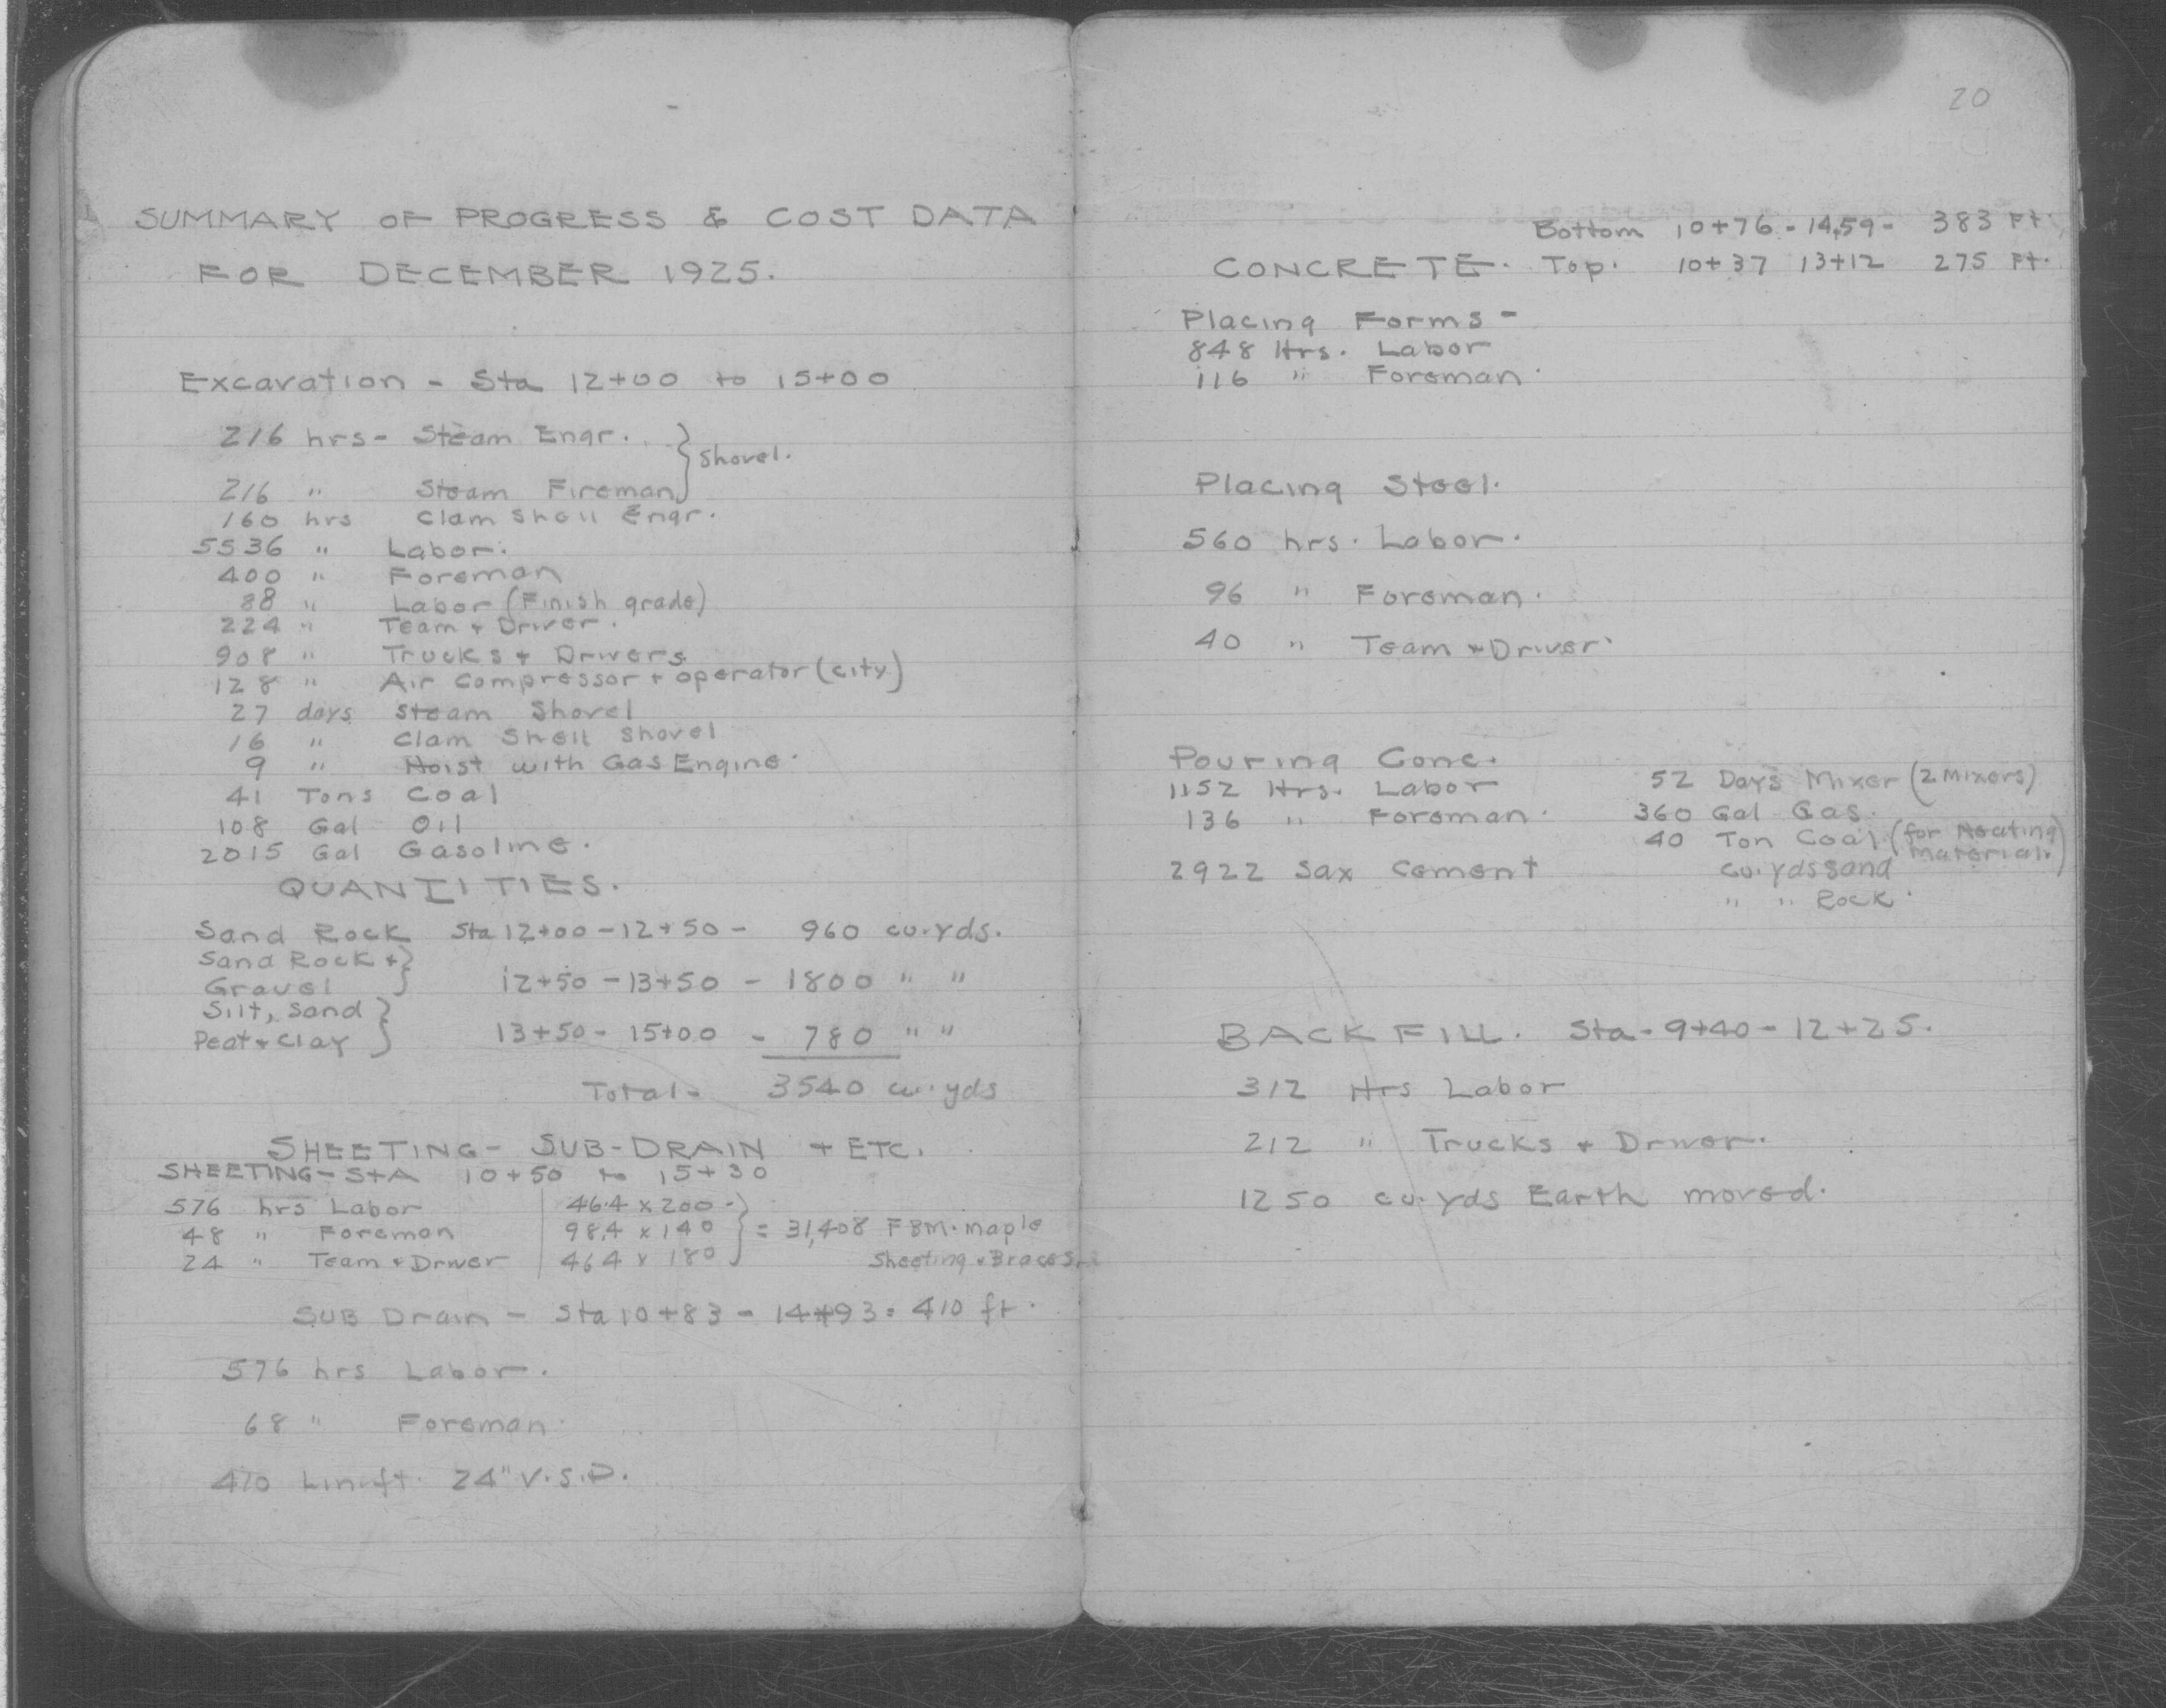 SUMMARY OF PROGRESS & COST DATA
FOR DECEMBER 1925.
Excavation - Sta 12+00 to 15+00
216 hrs - Steam Engr. } Shovel.
216 " Steam Fireman
160 hrs Clam Shell Engr.
5536 " Labor.
400 " Foreman
88 " Labor (Finish grade)
224 " Team + Driver.
908 " Trucks + Drivers.
128 " Air Compressor + operator (city)
27 days Steam Shovel
16 " Clam Shell Shovel
9 " Hoist with Gas Engine.
41 Tons Coal
108 Gal Oil
2015 Gal Gasoline.
QUANTITIES.
Sand Rock Sta 12+00 - 12+50 - 960 cu.yds.
Sand Rock + }
Gravel 12+50 - 13+50 - 1800 " "
Silt, Sand }
Peat + Clay 13+50 - 15+00 - 780 " "
Total - 3540 cu.yds
SHEETING - SUB-DRAIN + ETC.
SHEETING - STA 10+50 to 15+30
576 hrs Labor 464 x 200
48 " Foreman 984 x 140 } = 31,408 FBM. maple
24 " Team + Driver 464 x 180 Sheeting + Braces.
SUB Drain - Sta 10+83 - 14+93 = 410 ft.
576 hrs Labor.
68 " Foreman
410 Lin.ft. 24" V.S.P.
20
Bottom 10+76 - 14+59 - 383 Ft.
CONCRETE. Top. 10+37 13+12 275 Ft.
Placing Forms -
848 Hrs. Labor
116 " Foreman.
Placing Steel.
560 hrs. Labor.
96 " Foreman.
40 " Team + Driver.
Pouring Conc.
1152 Hrs. Labor
136 " Foreman.
2922 Sax Cement
52 Days Mixer (2 Mixers)
360 Gal Gas.
40 Ton Coal (for Heating
Material.)
cu.yds Sand
" " Rock.
BACK FILL. Sta - 9+40 - 12+25.
312 Hrs Labor
212 " Trucks + Driver.
1250 cu.yds Earth moved.